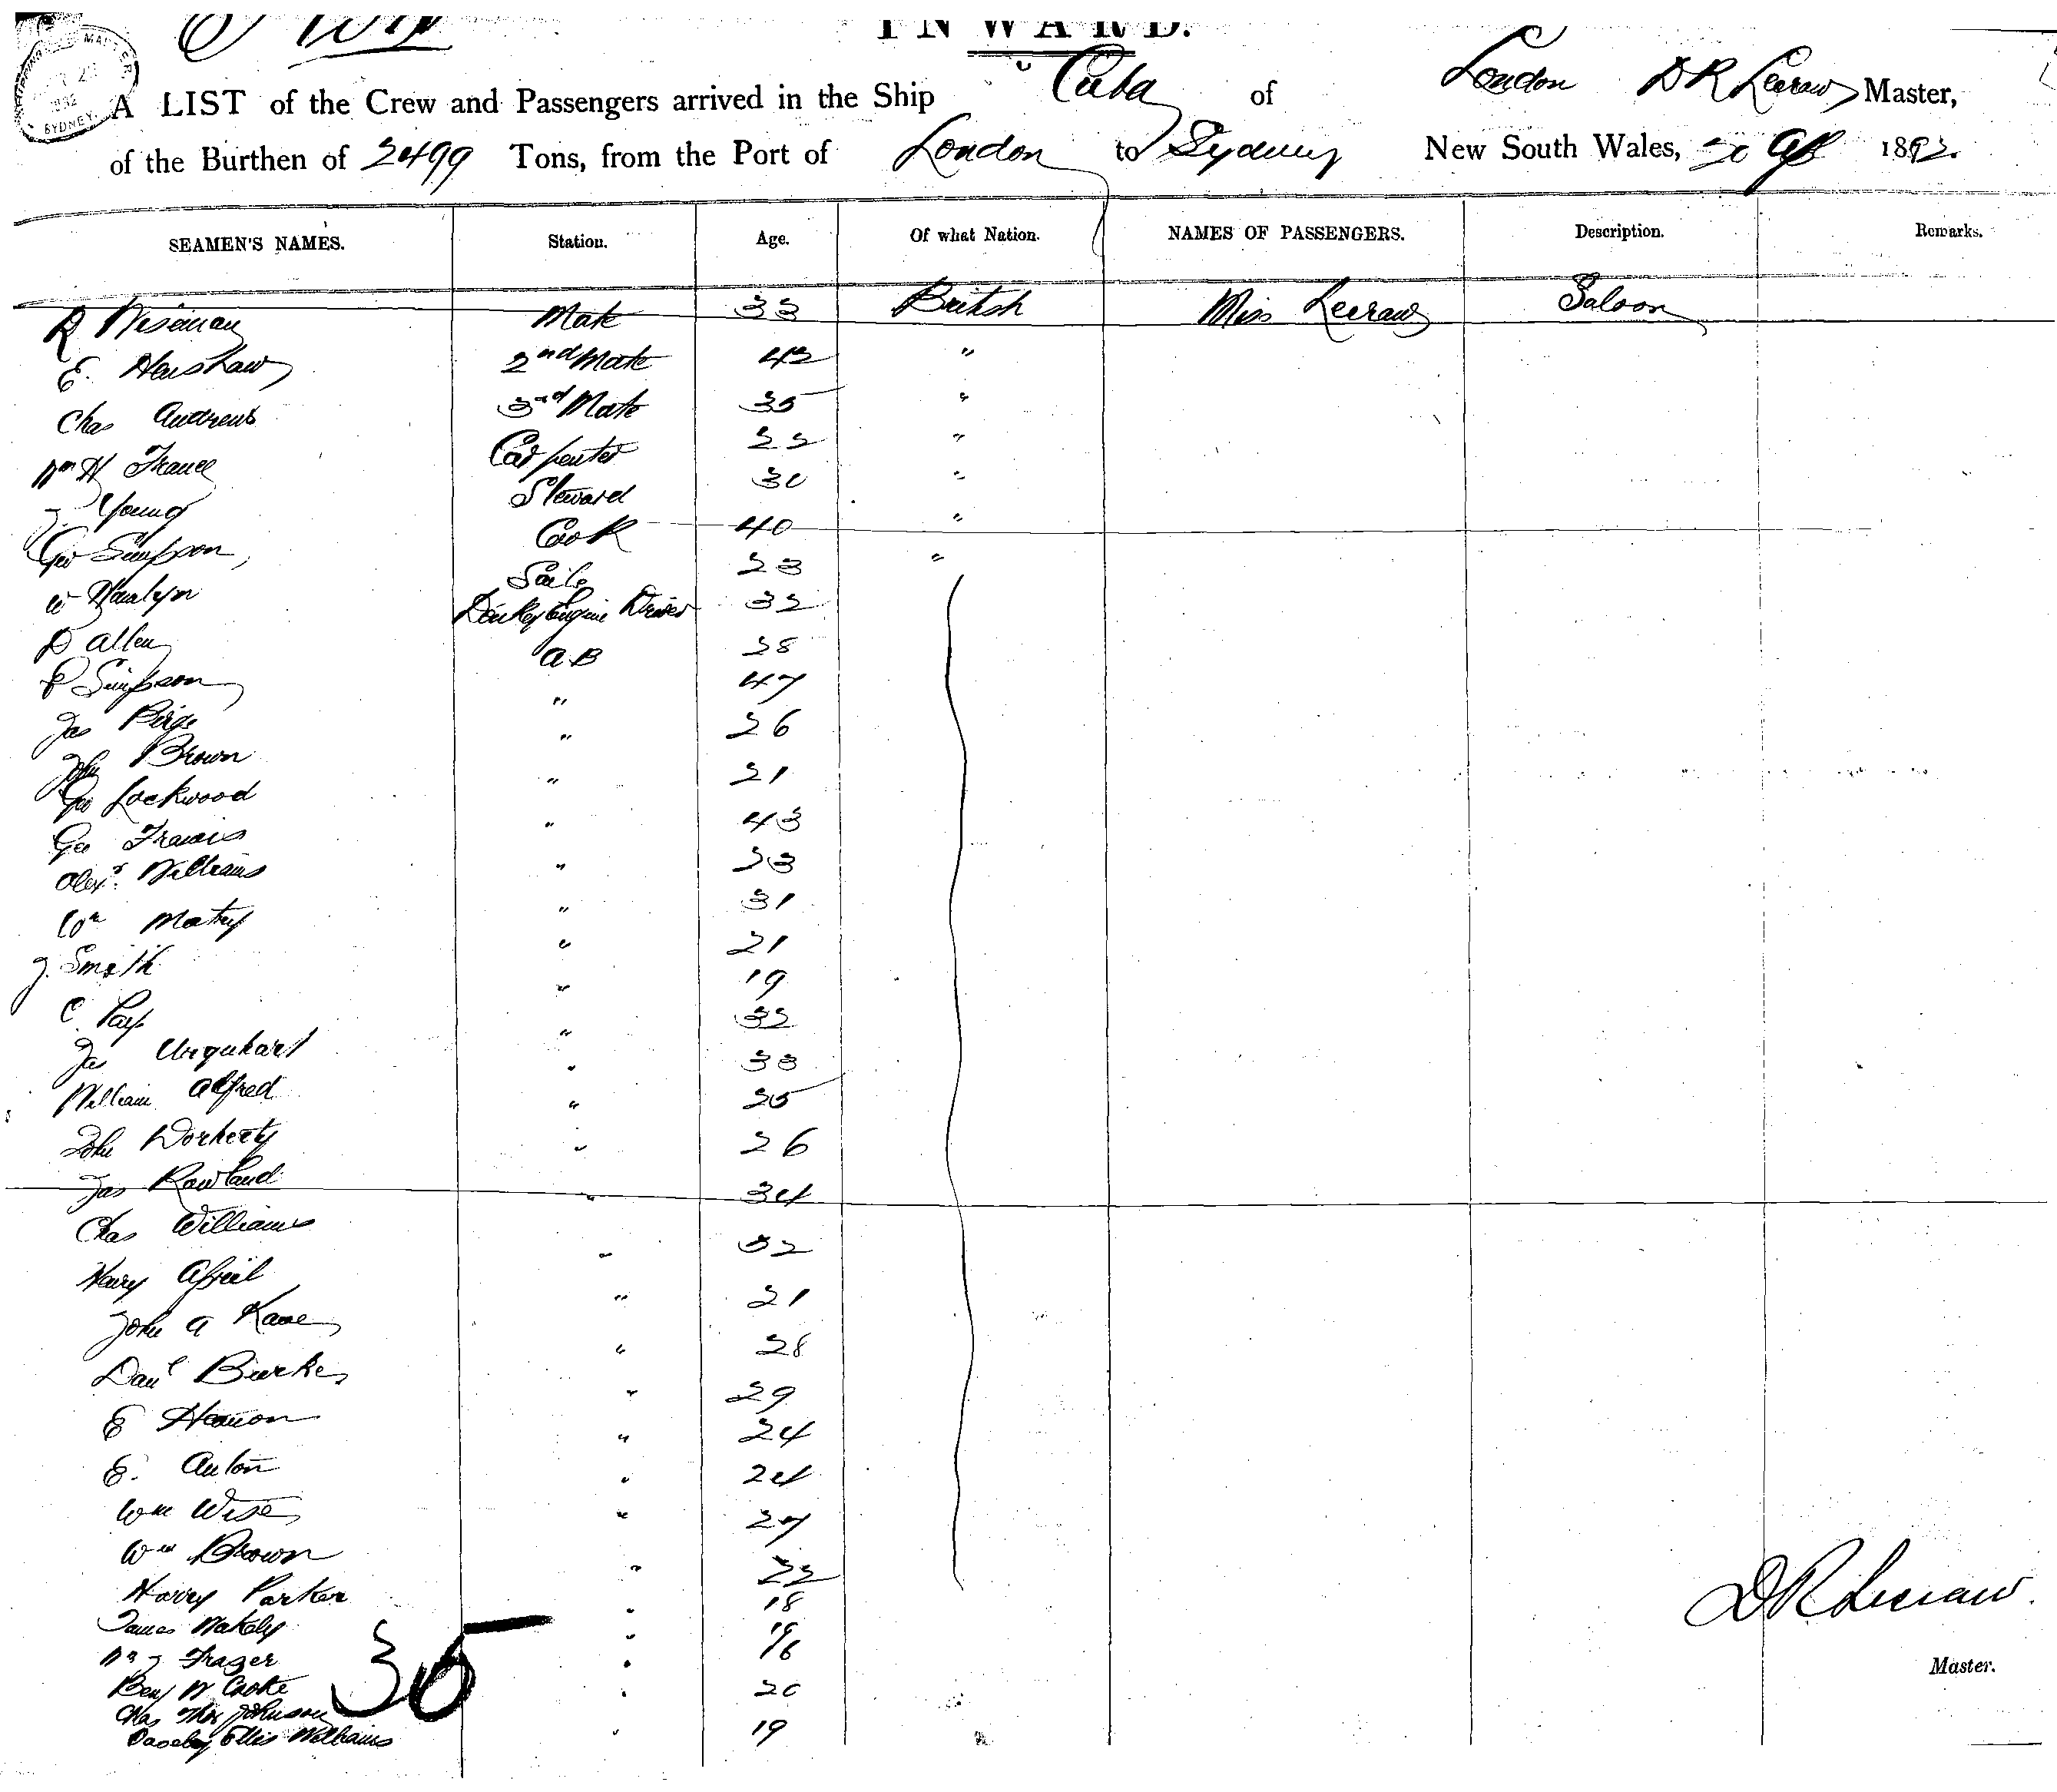 INWARD.
A LIST of the Crew and Passengers arrived in the Ship Cuba of London D R Lecraw Master,
of the Burthen of 2499 Tons, from the Port of London to Sydney New South Wales, 1892.
SEAMEN'S NAMES. Station. Age. Of what Nation. NAMES OF PASSENGERS. Description. Remarks.
R Wiseman Mate 33 British Miss Lecraw Saloon
E. Henshaw 2nd Mate 42 "
Chas Andrews 3rd Mate 35 "
Wm H France Carpenter 22 "
J. Young Steward 30 "
Geo Simpson Cook 40 "
W Hamlyn Sails 23 "
D Allen Donkey Engine Driver 32
P Simpson A.B 28
Jas " 47
John Brown " 26
Geo Lockwood " 21
Geo Francis " 43
Alexr. Williams " 23
Wm " 31
J. Smith " 21
C " 19
Jas Urquhart " 32
William Alfred " 33
John Dorherty " 25
Jas Rowland " 26
Chas Williams " 34
Harry April " 32
John A Kane " 21
Danl Burke " 28
E " 29
E. Anton " 24
Wm Wise " 24
Wm Brown " 27
Harry Parker " 22
James Wakely " 18
Frazer "
Benj W Cooke " 16
Chas Thos Johnson " 20
Ellis Williams " 19
35
D R Lecraw
Master.